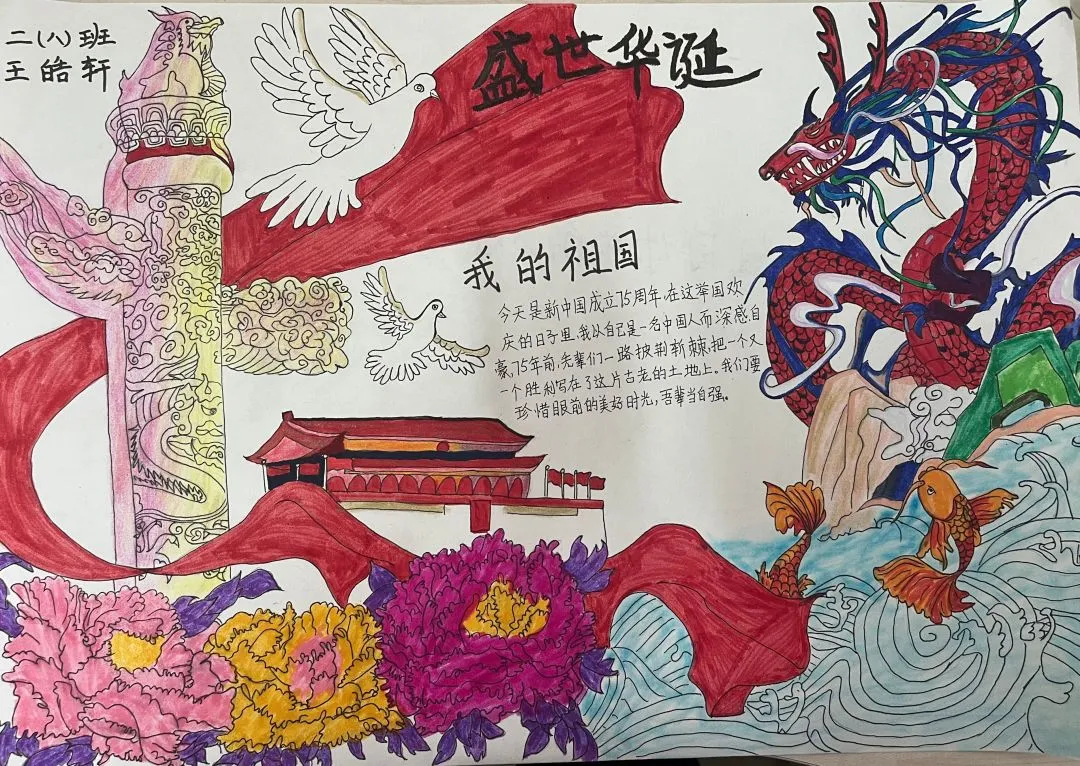 二(八)班
王皓轩
盛世华诞
我的祖国
今天是新中国成立75周年,在这举国欢
庆的日子里,我以自己是一名中国人而深感自
豪,75年前,先辈们一路披荆斩棘,把一个又
一个胜利写在了这片古老的土地上。我们要
珍惜眼前的美好时光,吾辈当自强。